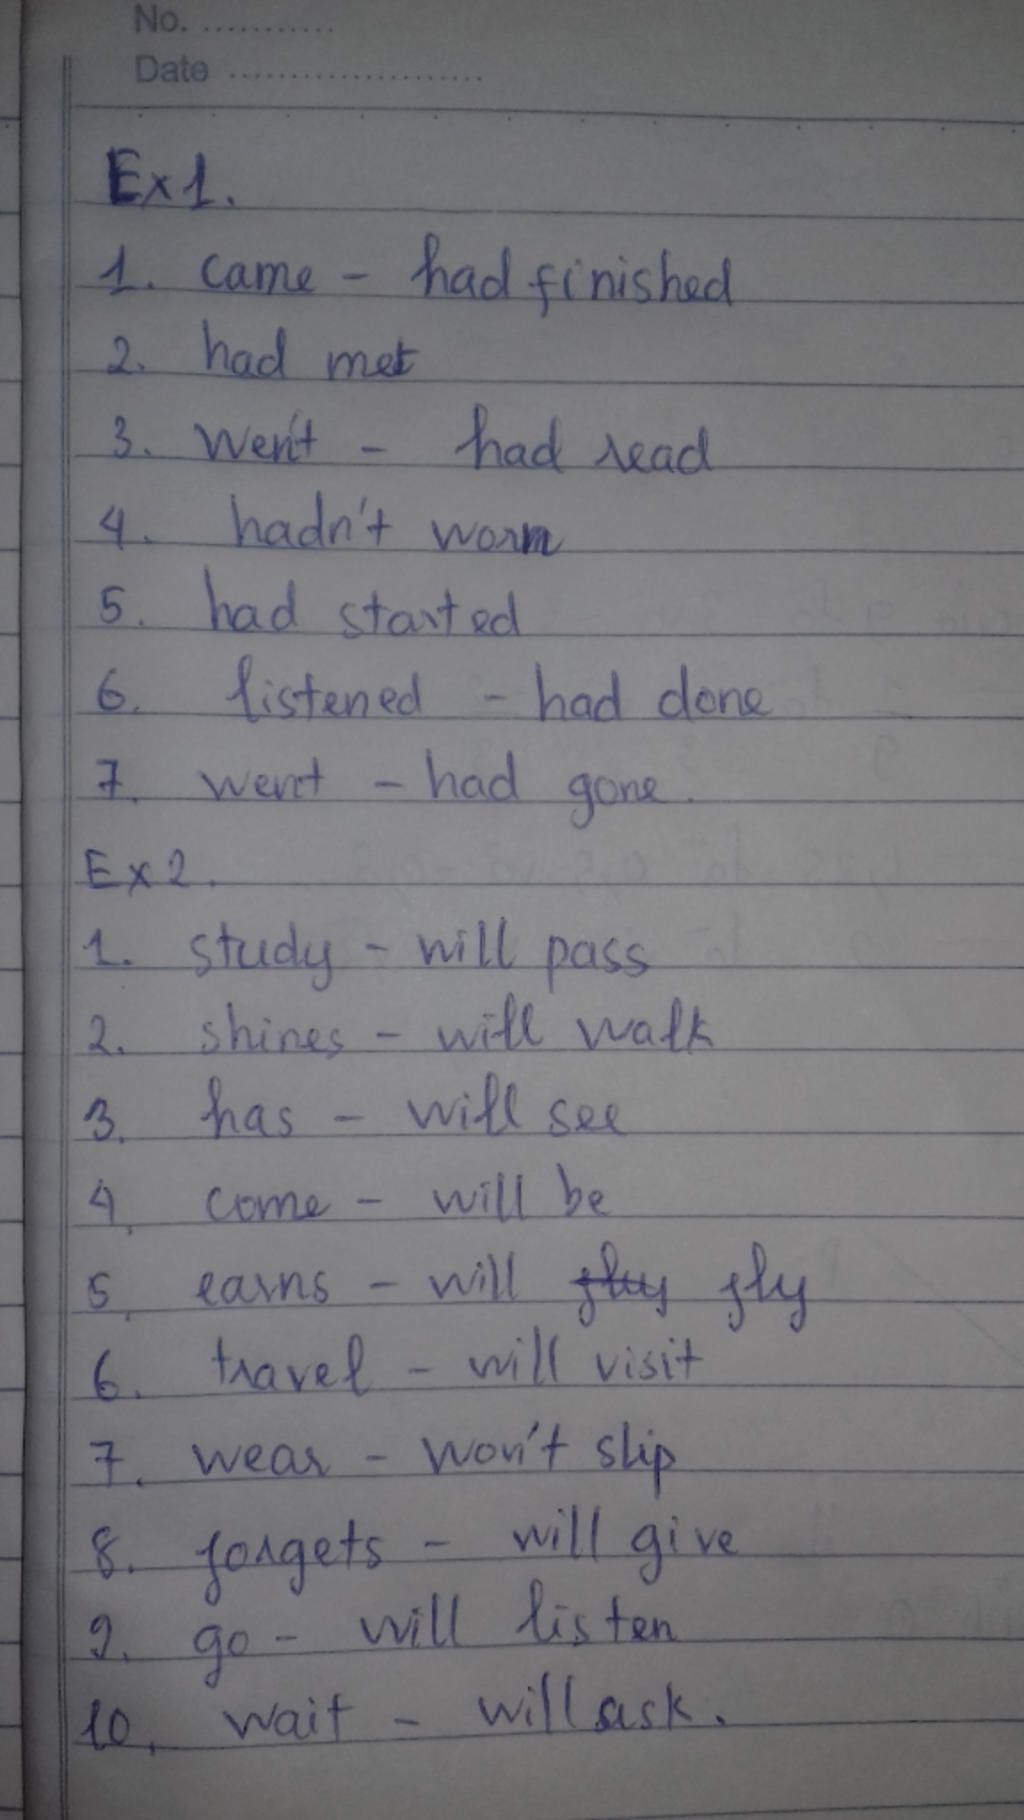 No. ...........
Date .....................
Ex1.
1. came - had finished
2. had met
3. went - had read
4. hadn't worn
5. had started
6. listened - had done
7. went - had gone.
Ex2.
1. study - will pass
2. shines - will walk
3. has - will see
4. come - will be
5. earns - will fly
6. travel - will visit
7. wear - won't slip
8. forgets - will give
9. go - will listen
10. wait - will ask.